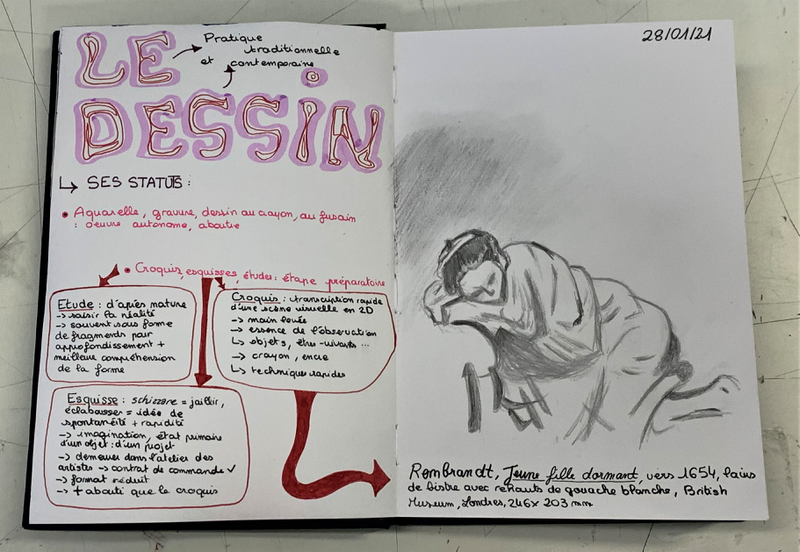 LE
DESSIN
Pratique
traditionnelle
et contemporaine
↳ SES STATUTS :
• Aquarelle, gravure, dessin au crayon, au fusain
: oeuvre autonome, aboutie
• Croquis, esquisses, études : étape préparatoire
Etude : d'après nature
→ saisir la réalité
→ souvent sous forme
de fragments pour
approfondissement +
meilleur compréhension
de la forme
Croquis : transcription rapide
d'une scène visuelle en 2D
→ main levée
→ essence de l'observation
↳ objets, êtres-vivants ...
→ crayon, encre
↳ techniques rapides
Esquisse : schizzare = jaillir,
éclabousser = idée de
spontanéité + rapidité
→ imagination, état primaire
d'un objet : d'un projet
→ demeurer dans l'atelier des
artistes → contrat de commande ✓
→ format réduit
→ + abouti que le croquis
28/01/21
Rembrandt, Jeune fille dormant, vers 1654, lavis
de bistre avec rehauts de gouache blanche, British
Museum, Londres, 246x 203 mm